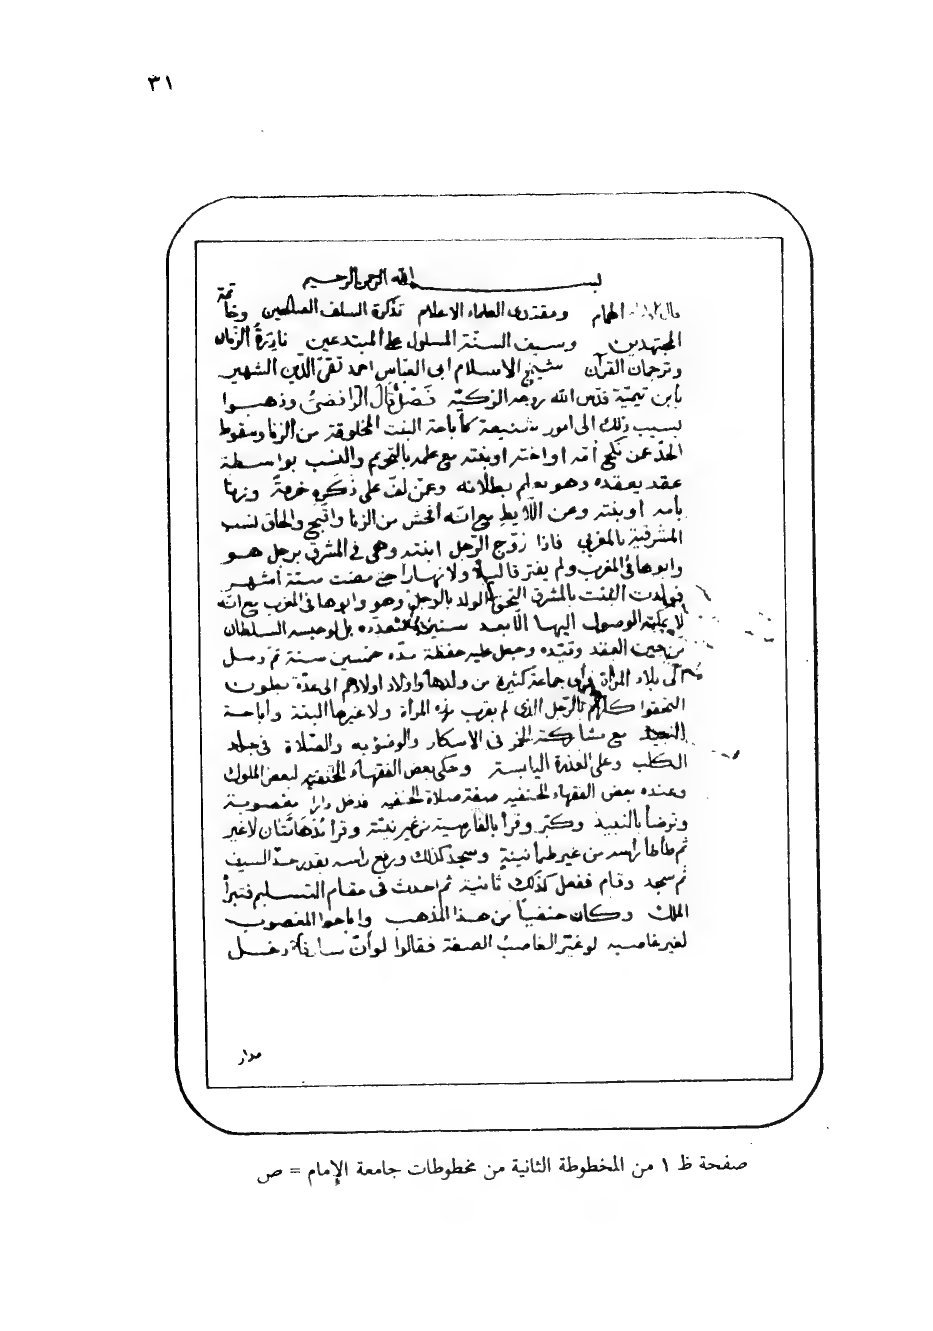 ٣١
بسم الله الرحمن الرحيم
قال الامام الهمام ومقتدى العلماء الاعلام تذكرة السلف الصالحين وخاتمة
المجتهدين وسيف السنة المسلول على المبتدعين نادرة الزمان
وترجمان القرآن شيخ الاسلام ابى العباس احمد تقى الدين الشهير
بابن تيمية قدس الله روحه الزكية فصل قال الرافضي وذهبوا
بسبب ذلك الى امور شنيعة كاباحة البنت المخلوقة من الزنا وسقوط
الحد عمن نكح امه او اخته او بنته مع علمه بالتحريم والنسب بواسطة
عقد يعقده وهو يعلم بطلانه وعمن لف على ذكره خرقة وزنا
بامه او بنته وعن اللايط مع انه افحش من الزنا واقبح والحاق نسب
المشرقية بالمغربي فاذا زوج الرجل ابنته وهي في المشرق برجل هو
وابوها في المغرب ولم يفترقا ليلا ولا نهارا حتى مضت ستة اشهر
فولدت البنت بالمشرق التحق الولد بالرجل وهو وابوها فى المغرب مع انه
لا يمكنه الوصول اليها الا بعد سنين متعدده بل لو حبسه السلطان
من حين العقد وقيده وجعل عليه حفظة مده خمسين سنة ثم وصل
الى بلاد المرأة فرأى جماعة كثيرة من ولدها واولاد اولادهم الى عدة بطون
التحقوا كلهم بالرجل الذى لم يقرب هذه المرأة ولا غيرها البتة واباحة
النبيذ مع مشاركته الخمر فى الاسكار والوضوء به والصلاة فى جلد
الكلب وعلى العذرة اليابسة وحكى بعض الفقهاء الحنفية لبعض الملوك
وعنده بعض الفقهاء الحنفيه صفة صلاة الحنفيه فدخل دارا مغصوبة
وتوضأ بالنبيذ وكبر وقرأ بالفارسية من غير نية وقرأ مدهامتان لا غير
ثم طأطأ راسه من غير طمأنينة وسجد كذلك ورفع راسه بقدر حد السيف
ثم سجد وقام ففعل كذلك ثانية ثم احدث فى مقام التسليم فتبرأ
الملك وكان حنفيا من هذا المذهب واباحوا المغصوب
لغير غاصبه لو غير الغاصب الصفة فقالوا لو أن سارقا دخل
مدار
صفحة ظ ١ من المخطوطة الثانية من مخطوطات جامعة الإمام = ص